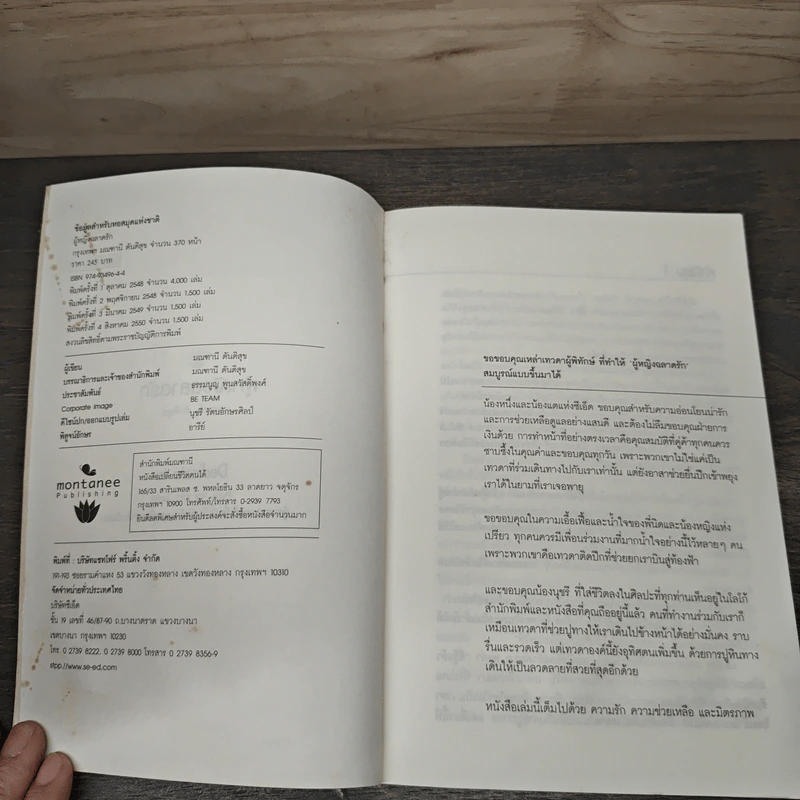 ข้อมูลสำหรับหอสมุดแห่งชาติ
ผู้หญิงฉลาดรัก
กรุงเทพฯ มณฑานี ตันติสุข จำนวน 370 หน้า
ราคา 245 บาท
ISBN 974-93496-4-4
พิมพ์ครั้งที่ 1 ตุลาคม 2548 จำนวน 4,000 เล่ม
พิมพ์ครั้งที่ 2 พฤศจิกายน 2548 จำนวน 1,500 เล่ม
พิมพ์ครั้งที่ 3 มีนาคม 2549 จำนวน 1,500 เล่ม
พิมพ์ครั้งที่ 4 สิงหาคม 2550 จำนวน 1,500 เล่ม
สงวนลิขสิทธิ์ตามพระราชบัญญัติการพิมพ์
ผู้เขียน มณฑานี ตันติสุข
บรรณาธิการและเจ้าของสำนักพิมพ์ มณฑานี ตันติสุข
ประชาสัมพันธ์ ธรรมนูญ พูนสวัสดิ์พงศ์
Corporate image BE TEAM
ดีไซน์ปก/ออกแบบรูปเล่ม นุชรี รัตนอักษรศิลป์
พิสูจน์อักษร อารีย์
montanee
Publishing
สำนักพิมพ์มณฑานี
หนังสือเปลี่ยนชีวิตคนได้
165/33 สารินเพลส ซ. พหลโยธิน 33 ลาดยาว จตุจักร
กรุงเทพฯ 10900 โทรศัพท์/โทรสาร 0-2939 7793
ยินดีลดพิเศษสำหรับผู้ประสงค์จะสั่งซื้อหนังสือจำนวนมาก
พิมพ์ที่ : บริษัทแซทโฟร์ พริ้นติ้ง จำกัด
191-193 ซอยรามคำแหง 53 แขวงวังทองหลาง เขตวังทองหลาง กรุงเทพฯ 10310
จัดจำหน่ายทั่วประเทศไทย
บริษัทซีเอ็ด
ชั้น 19 เลขที่ 46/87-90 ถ.บางนาตราด แขวงบางนา
เขตบางนา กรุงเทพฯ 10230
โทร. 0 2739 8222, 0 2739 8000 โทรสาร 0 2739 8356-9
stpp://www.se-ed.com
ขอขอบคุณเหล่าเทวดาผู้พิทักษ์ ที่ทำให้ 'ผู้หญิงฉลาดรัก'
สมบูรณ์แบบขึ้นมาได้
น้องหนึ่งและน้องแตแห่งซีเอ็ด ขอบคุณสำหรับความอ่อนโยนน่ารัก
และการช่วยเหลือดูแลอย่างแสนดี และต้องไม่ลืมขอบคุณฝ่ายการ
เงินด้วย การทำหน้าที่อย่างตรงเวลาคือคุณสมบัติที่คู่ค้าทุกคนควร
ซาบซึ้งในคุณค่าและขอบคุณทุกวัน เพราะพวกเขาไม่ใช่แค่เป็น
เทวดาที่ร่วมเดินทางไปกับเราเท่านั้น แต่ยังอาสาช่วยยื่นปีกเข้าพยุง
เราได้ในยามที่เราเจอพายุ
ขอขอบคุณในความเอื้อเฟื้อและน้ำใจของพี่นิดและน้องหญิงแห่ง
เปรียว ทุกคนควรมีเพื่อนร่วมงานที่มากน้ำใจอย่างนี้ไว้หลายๆ คน
เพราะพวกเขาคือเทวดาติดปีกที่ช่วยยกเราบินสู่ท้องฟ้า
และขอบคุณน้องนุชรี ที่ใส่ชีวิตลงในศิลปะที่ทุกท่านเห็นอยู่ในโลโก้
สำนักพิมพ์และหนังสือที่คุณถืออยู่นี้แล้ว คนที่ทำงานร่วมกับเราก็
เหมือนเทวดาที่ช่วยปูทางให้เราเดินไปข้างหน้าได้อย่างมั่นคง ราบ
รื่นและรวดเร็ว แต่เทวดาองค์นี้ยังอุทิศตนเพิ่มขึ้น ด้วยการปูหินทาง
เดินให้เป็นลวดลายที่สวยที่สุดอีกด้วย
หนังสือเล่มนี้เต็มไปด้วย ความรัก ความช่วยเหลือ และมิตรภาพ